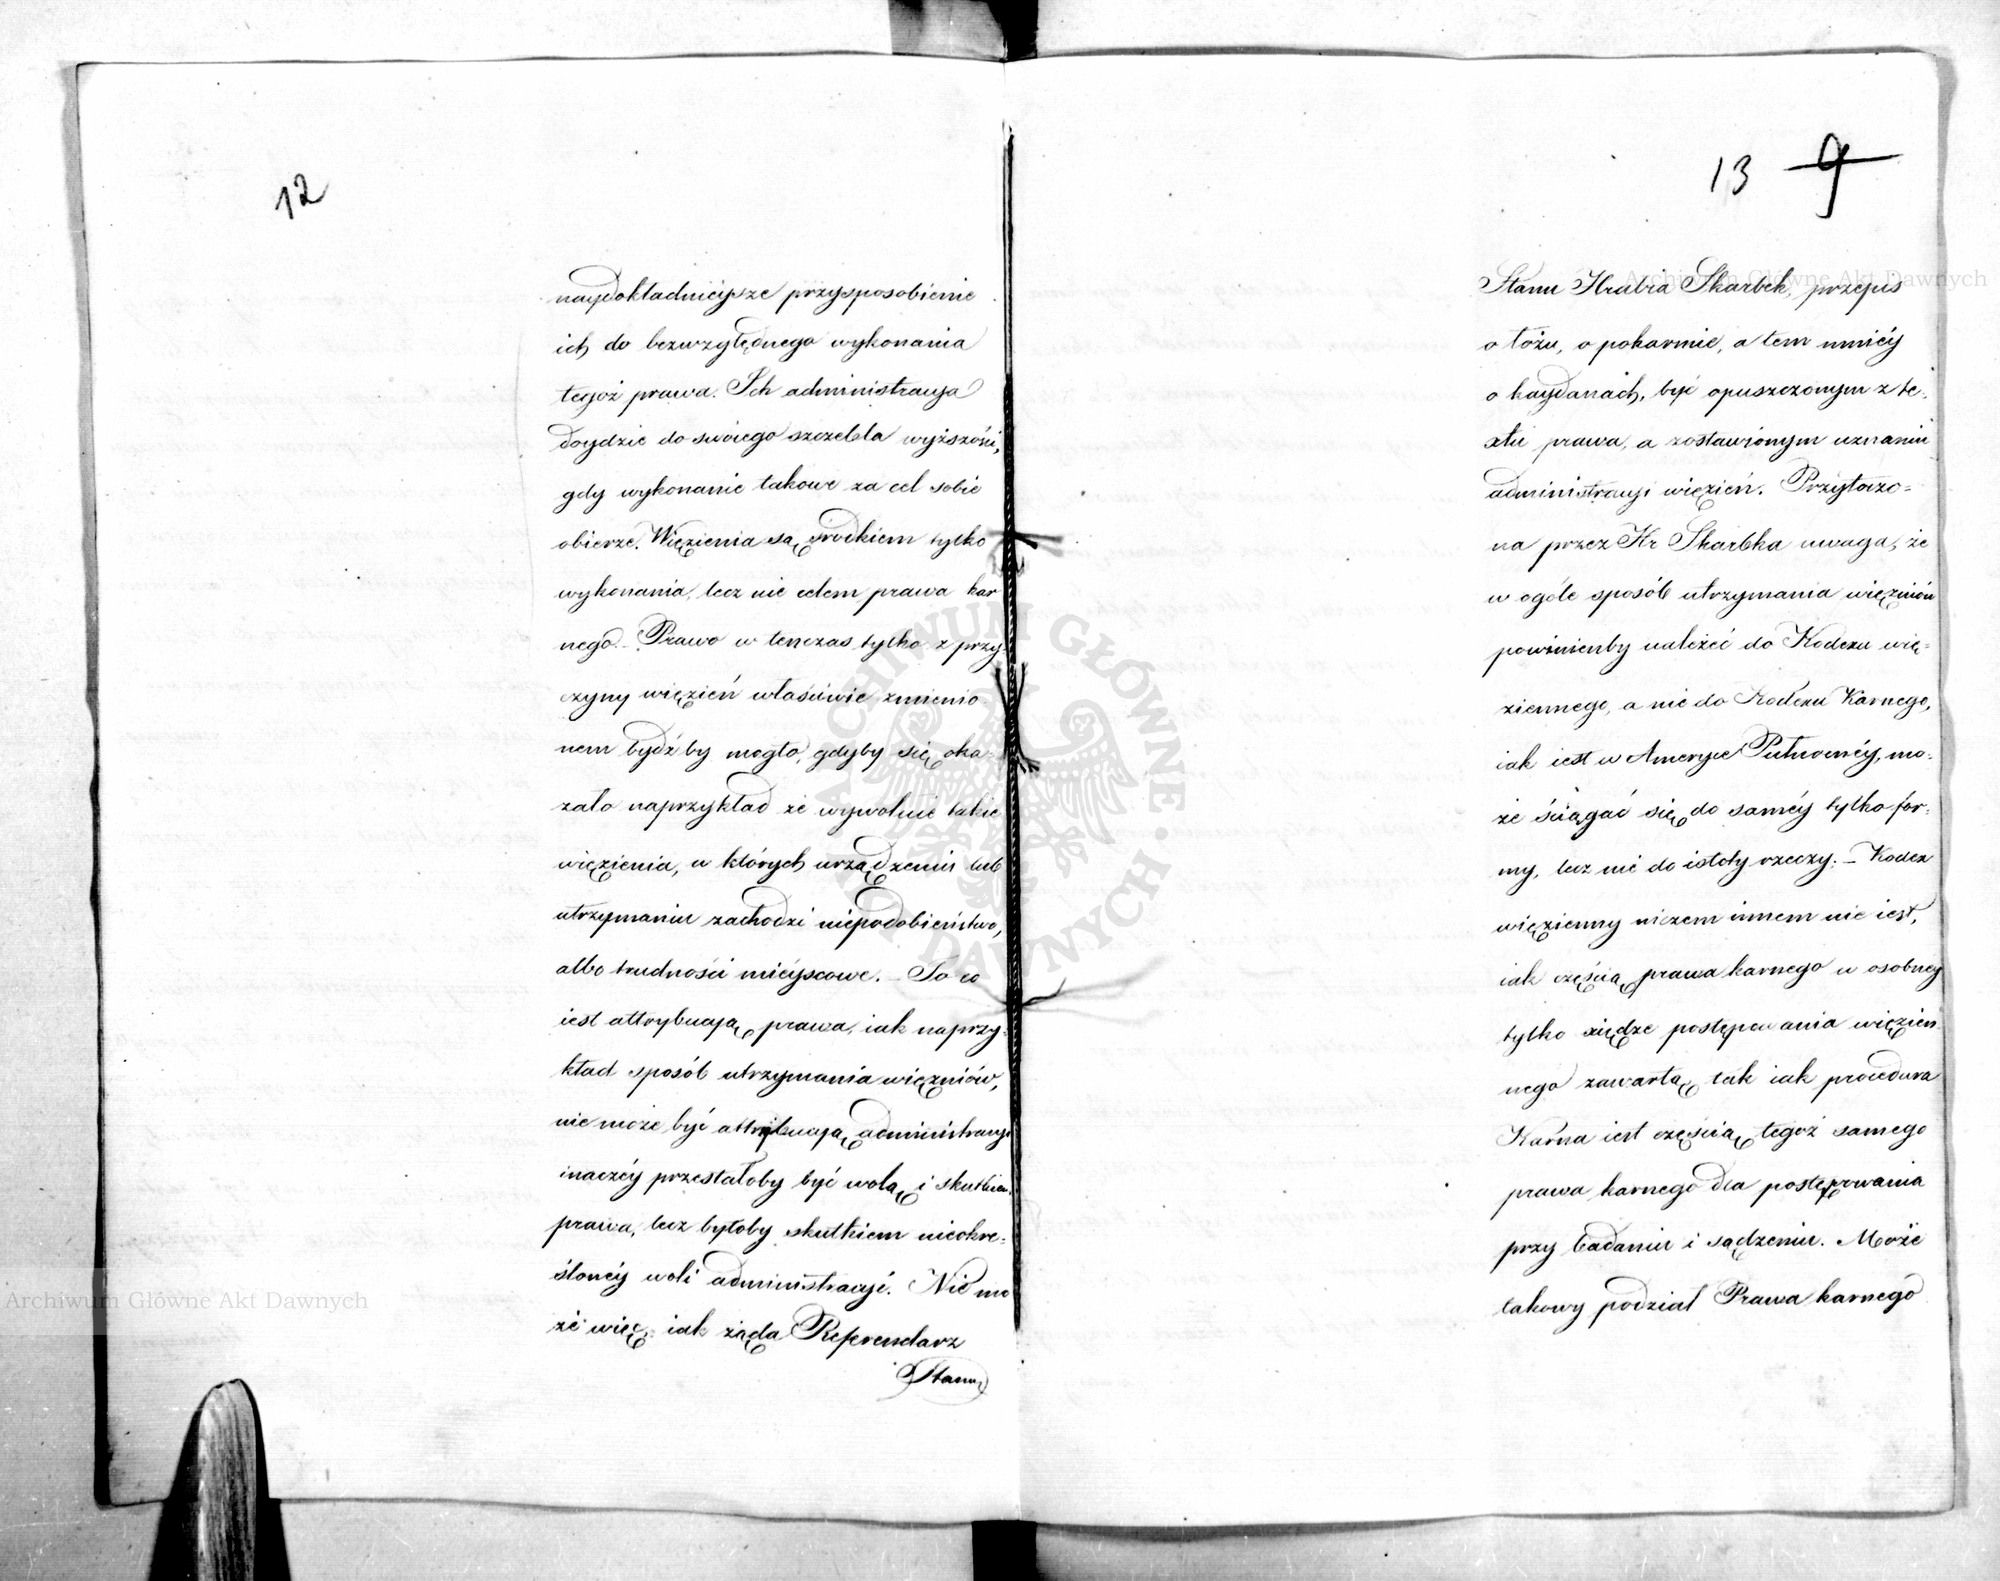 12
naydokładnieysze przysposobienie
ich do bezwzględnego wykonania
tegoż prawa. Ich administracya
doydzie do swoiego szczebla wyższości,
gdy wykonanie takowe za cel sobie
obierze. Więzienia są środkiem tylko
wykonania, lecz nie celem prawa kar
nego. – Prawo w tenczas tylko z przy-
czyny więzień właściwie zmienio-
nem bydź by mogło, gdyby się oka-
zało naprzykład że wywołuie takie
więzienia, w których urządzeniu lub
utrzymaniu zachodzi niepodobieństwo,
albo trudności mieyscowe. – To co
iest attrybucyą prawa, iak naprzy-
kład sposób utrzymania więźniów,
nie może być attrybucyą administracyi
inaczéy przestałoby być wolą i skutkiem
prawa, lecz byłoby skutkiem nieokre-
ślonéy woli administracyi. Nie mo
że więc, iak żąda Referendarz
Stanu
13 9
Stanu Hrabia Skarbek, przepis
o łożu, o pokarmie, a tem mniéy
o kaydanach, być opuszczonym z te-
xtu prawa, a zostawionym uznaniu
administracyi więzień. Przytoczo-
na przez Hr Skarbka uwaga, że
w ogóle sposób utrzymania więźniów
powinienby należeć do Kodexu wię-
ziennego, a nie do Kodexu Karnego,
iak iest w Ameryce Północnéy, mo-
że ściągać się do saméy tylko for-
my, lecz nie do istoty rzeczy. – Kodex
więzienny niczem innem nie iest,
iak częścią prawa karnego w osobnéy
tylko xiędze postępowania więzien-
nego zawartą, tak iak procedura
Karna iest częścią tegoż samego
prawa karnego dla postępowania
przy badaniu i sądzeniu. Może
takowy podział Prawa karnego
Archiwum Główne Akt Dawnych
Archiwum Główne Akt Dawnych
ARCHIWUM GŁÓWNE AKT DAWNYCH